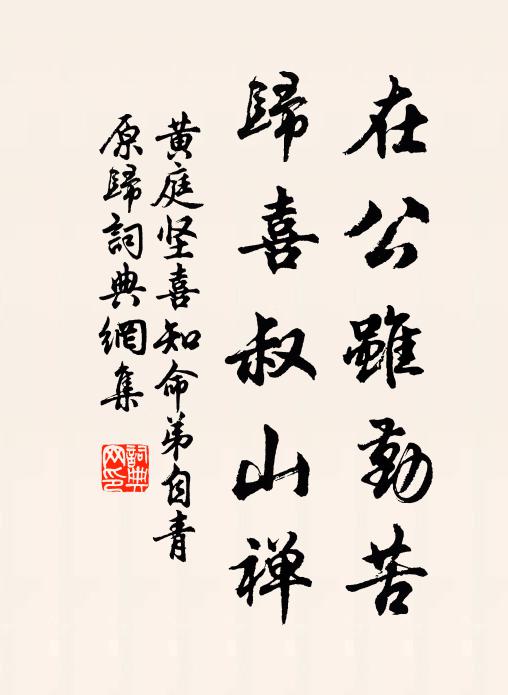 在公雖勤苦
歸喜叔山禅
黄庭坚喜知命弟自青
原歸詞典網集
詞典网